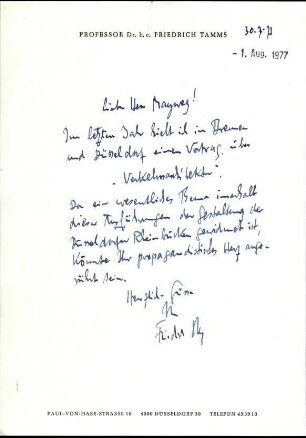 PROFESSOR Dr. h. c. FRIEDRICH TAMMS
30.7.77
- 1. Aug. 1977
Lieber Herr Mayweg!
Im letzten Jahr hielt ich in Bremen
und Düsseldorf einen Vortrag über
"Verkehrsarchitektur".
Da ein wesentliches Thema innerhalb
dieser Ausführungen der Gestaltung der
Düsseldorfer Rheinbrücken gewidmet ist,
könnte Ihr propagandistisches Herz ange-
rührt sein.
Herzliche Grüsse
Ihr
PAUL-VON-HASE-STRASSE 10 4000 DÜSSELDORF 30 TELEFON 43 39 13